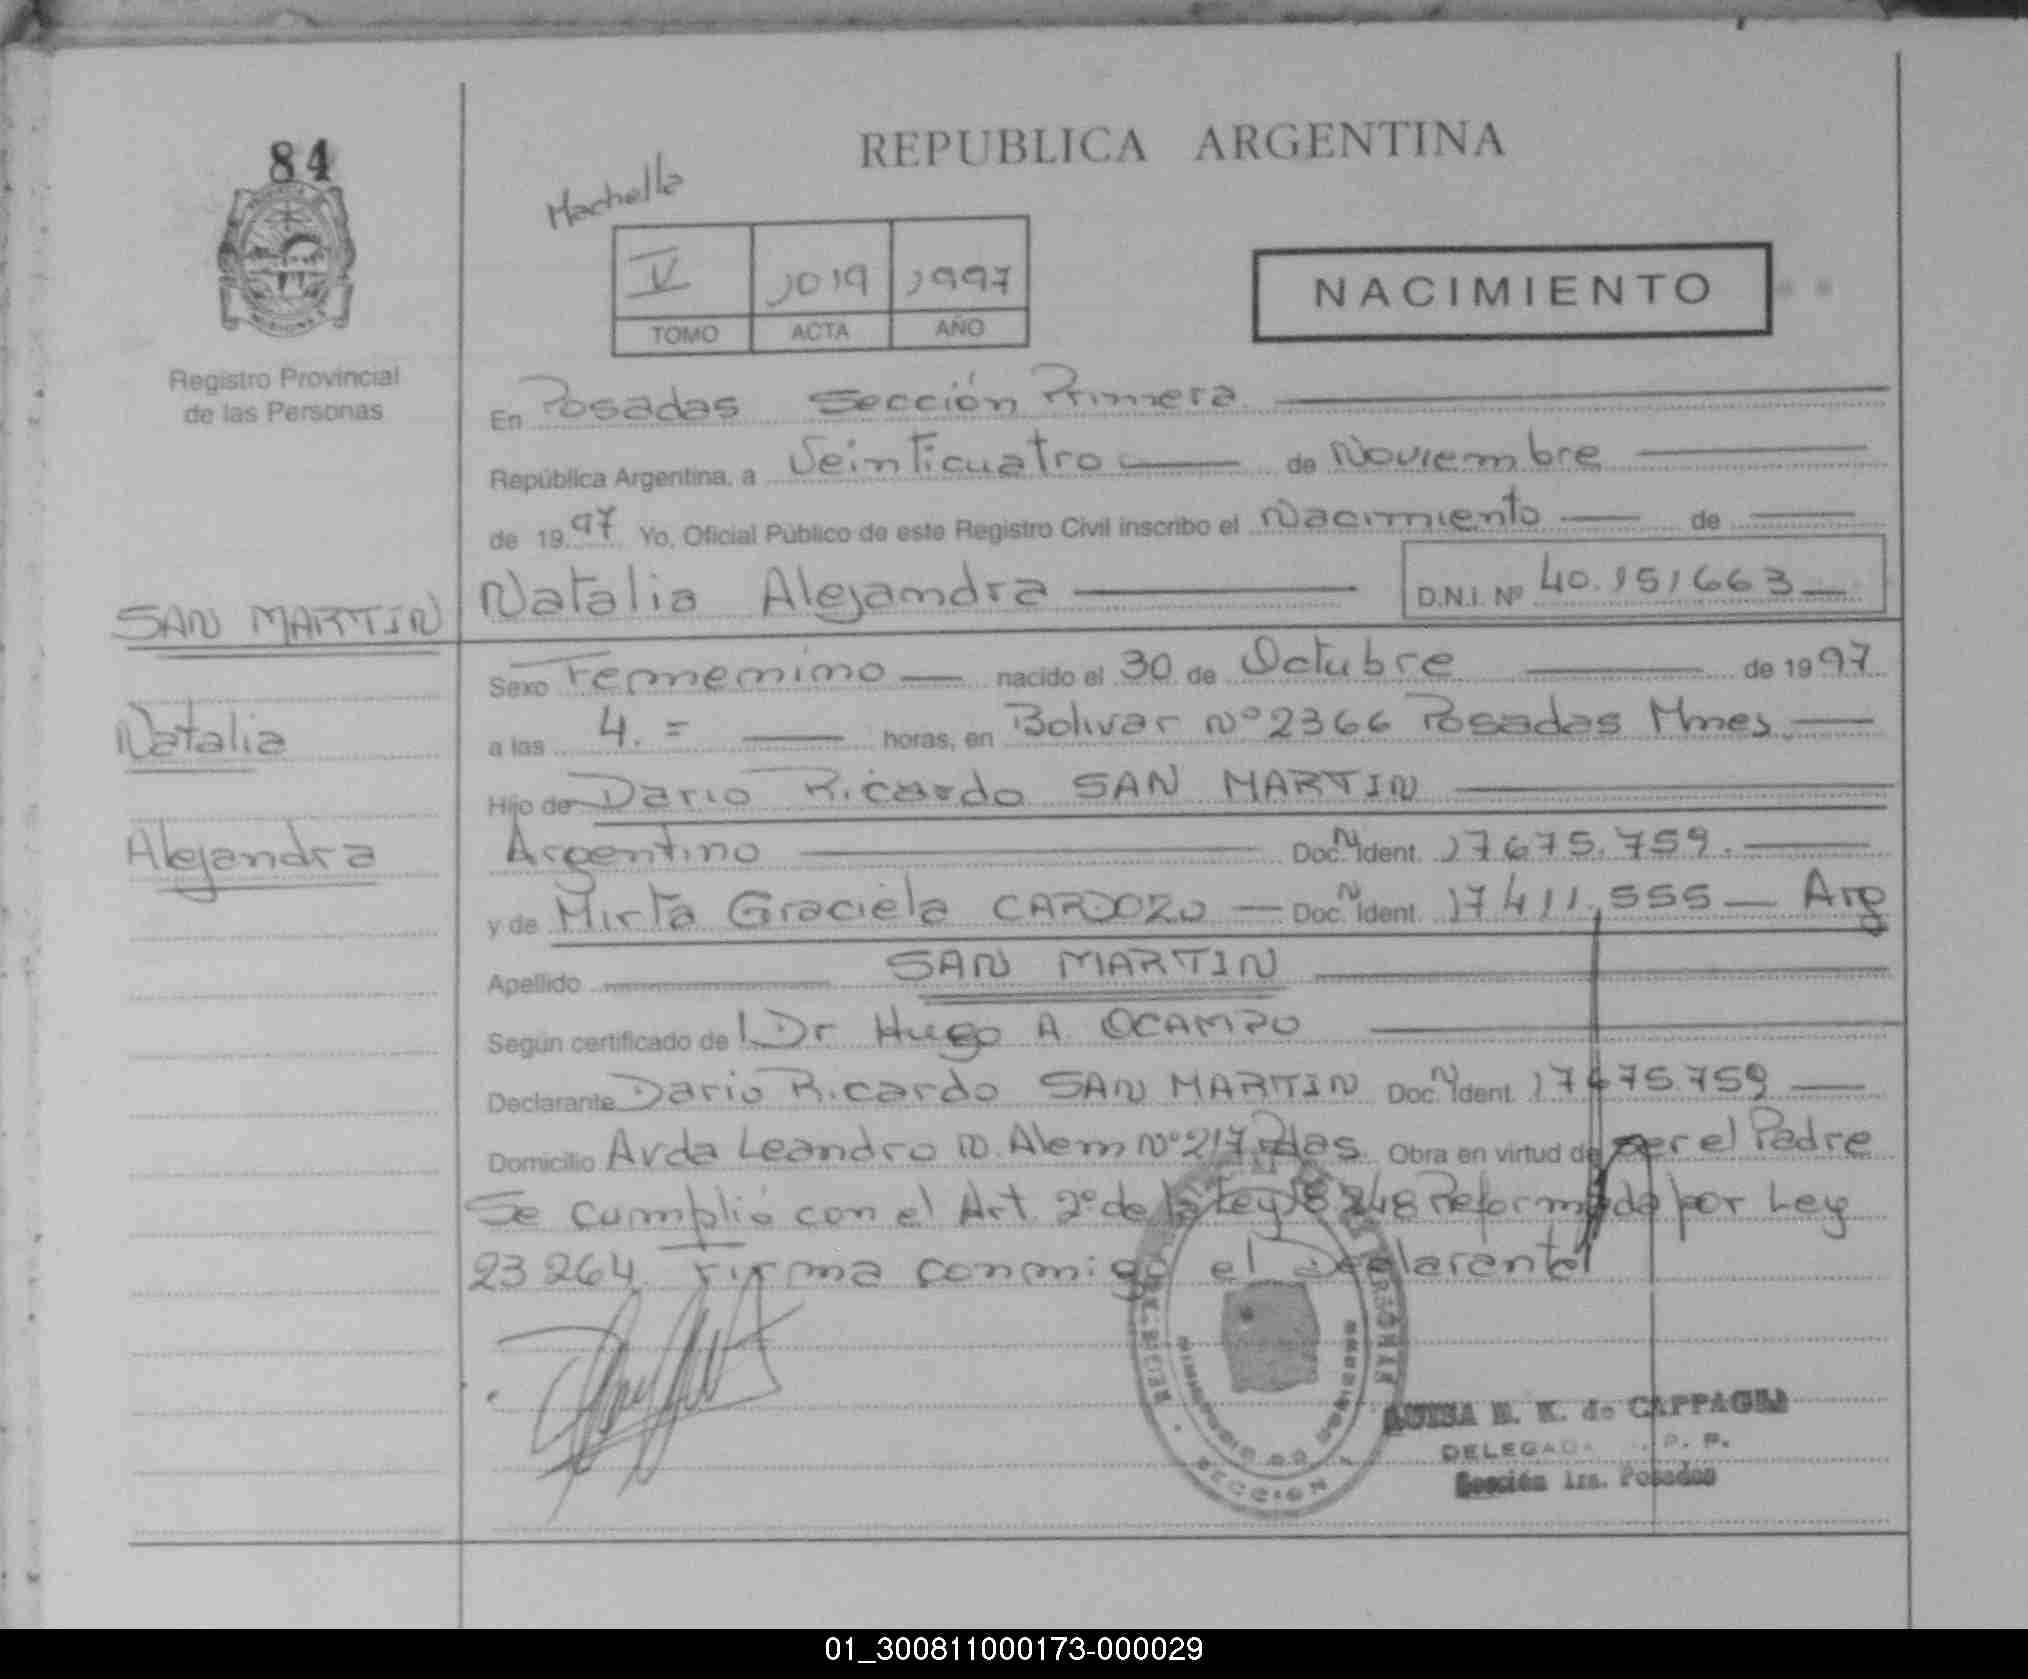 84
REPUBLICA ARGENTINA
Machella
V 1019 1997
TOMO ACTA AÑO
NACIMIENTO
Registro Provincial
de las Personas
En Posadas Sección Primera
República Argentina, a Veinticuatro de Noviembre
de 1997 Yo, Oficial Público de este Registro Civil inscribo el Nacimiento de
SAN MARTIN
Natalia
Alejandra
Natalia Alejandra D.N.I. Nº 40.151663
Sexo Femenino nacido el 30 de Octubre de 1997
a las 4.= horas, en Bolivar Nº 2366 Posadas Mnes
Hijo de Dario Ricardo SAN MARTIN
Argentino Doc. N Ident. 17675.759.
y de Mirta Graciela CARDOZO Doc. N Ident. 17411.555 Arg
Apellido SAN MARTIN
Según certificado de Dr Hugo A. OCAMPO
Declarante Dario Ricardo SAN MARTIN Doc. N Ident. 17675.759
Domicilio Avda Leandro N. Alem Nº 217 Pdas. Obra en virtud de ser el Padre
Se cumplió con el Art. 2º de la Ley 18248 Reformada por Ley
23264. Firma conmigo el Declarante
SECCION 1
LUISA E. K. de CAPPAGLI
DELEGADA R. P. P.
Sección 1ra. Posadas
01_300811000173-000029